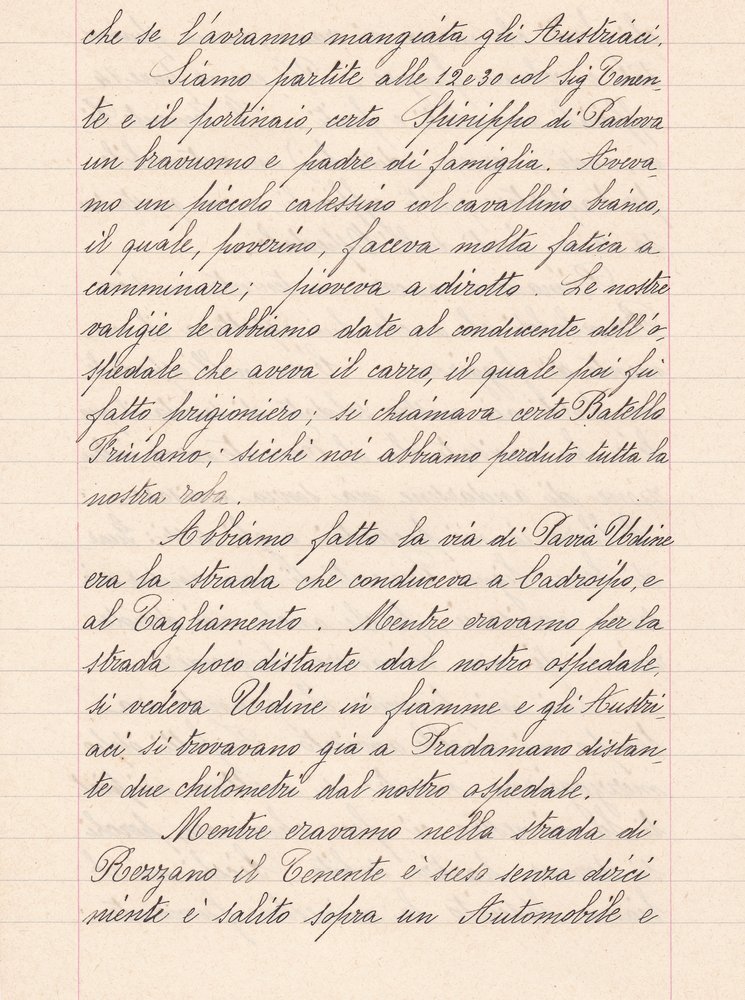 che se l'avranno mangiata gli Austriaci.
Siamo partite alle 12 e 30 col Sig Tenen-
te e il portinaio, certo Spinippo di Padova
un bravuomo e padre di famiglia. Aveva-
mo un piccolo calessino col cavallino bianco,
il quale, poverino, faceva molta fatica a
camminare; pioveva a dirotto. Le nostre
valigie le abbiamo date al conducente dell'o-
spedale che aveva il carro, il quale poi fù
fatto prigioniero; si chiamava certo Batello
Friulano; sicchè noi abbiamo perduto tutta la
nostra roba.
Abbiamo fatto la via di Pavia Udine
era la strada che conduceva a Codroipo, e
al Tagliamento. Mentre eravamo per la
strada poco distante dal nostro ospedale,
si vedeva Udine in fiamme e gli Austri-
aci si trovavano già a Pradamano distan-
te due chilometri dal nostro ospedale.
Mentre eravamo nella strada di
Rozzano il Tenente è sceso senza dirci
niente è salito sopra un Automobile e